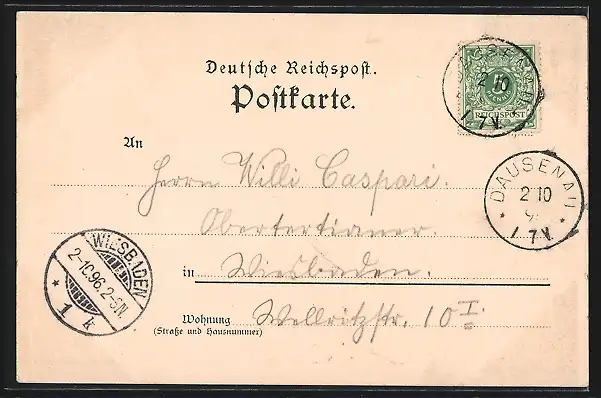 Deutsche Reichspost.
Postkarte.
5
REICHSPOST
2 10
7 V.
An
Herrn Willi Caspari.
Obertertianer
in Wiesbaden.
Wohnung Wellritzstr. 10 I.
(Straße und Hausnummer)
DAUSENAU
2 10
9
7 V.
WIESBADEN
2-10.96.2-6N.
* 1 k